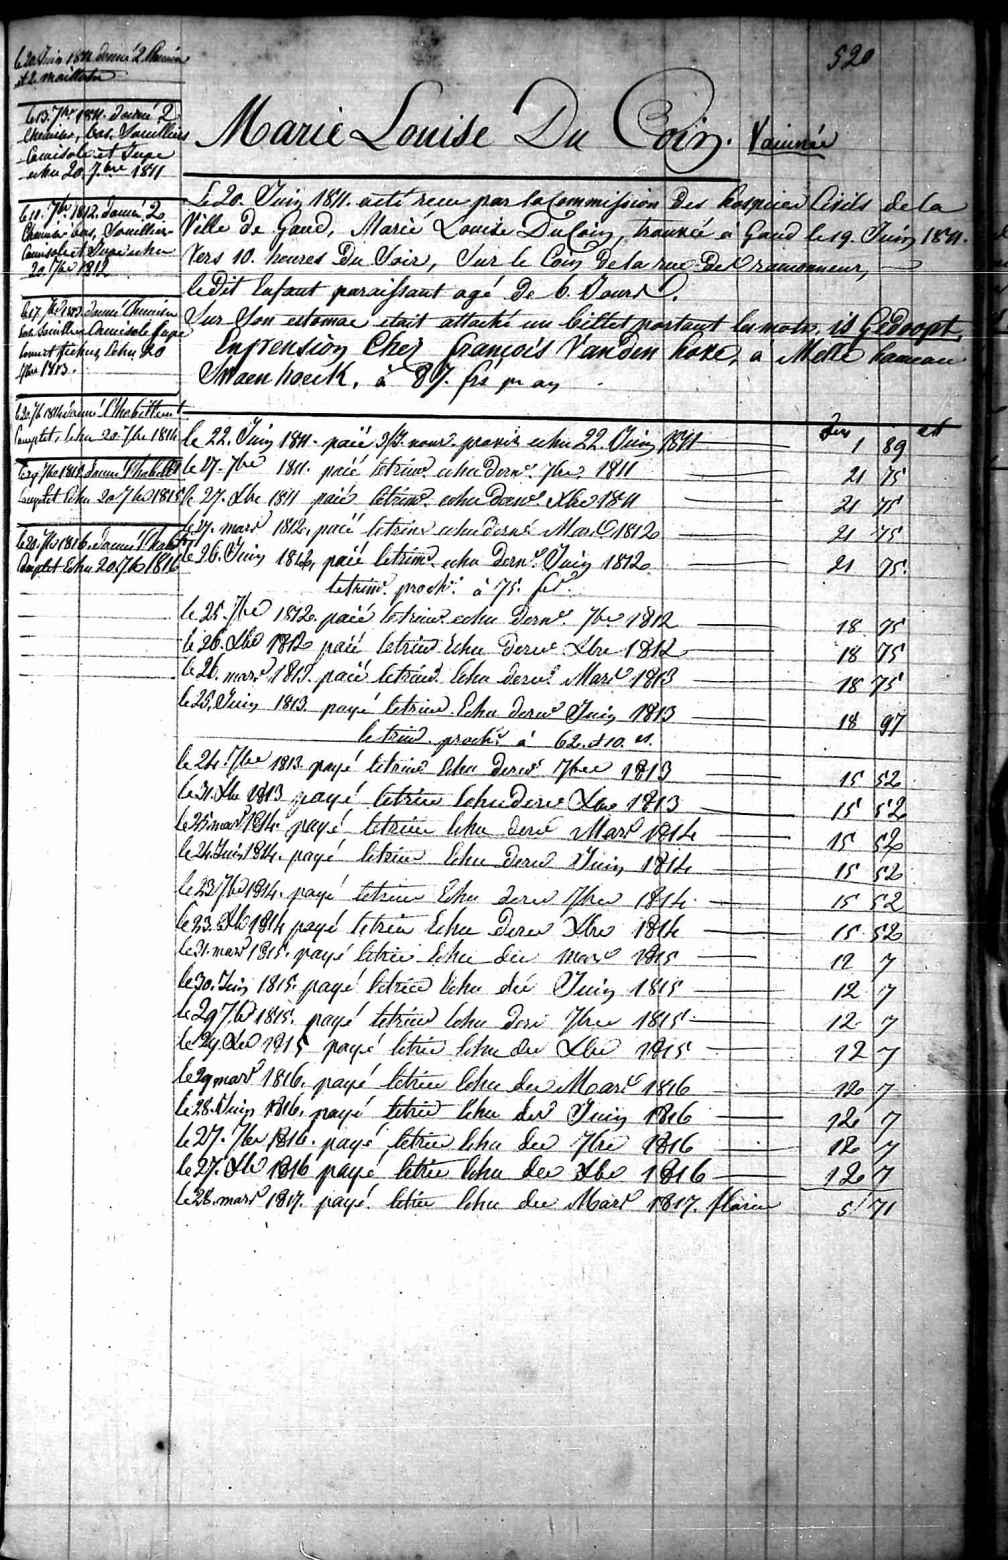 520
Marie Louise Du Coin. Vaccinée
Le 20. Juin 1811. acté recu par la Commission des hospices Civils de la
Ville de Gand, Marie Louise DuCoin, trouvée a Gand le 19. Juin 1811.
Vers 10. heures Du Soir, Sur le Coin de la rue De Ramonneur,
le dit Enfant paraissant agé De 6. Jours.
Sur Son estomac etait attaché un billet portant les mots, is Gedoopt
En pension Chez françois Vanden hove, a Melle hameau
à 87. frs pr an
le 20 Juin 1811 donné 2 Chemises
et 2. maillots
le 13. 7bre 1811. donné 2
Chemises, bas, Souliers
Camisole et Jupe
echu 20. 7bre 1811
le 11. 7bre 1812. donné 2
Chemises bas, Souliers
Camisole et Jupe echu
20 7bre 1812
le 17. 7bre 1813. donné Chemise
bas Souliers Camisole Jupe
bonnet fichus Echu 20
7bre 1813.
le 20 7b 1814 donné l'habillemt
Complet, Echu 20 7bre 1814
le 29 7bre 1815. donné l'habillt
Complet Echu 20 7bre 1815
le 20. 7bre 1816. donné l'habilt
Complet Echu 20. 7b 1816
frs ct
le 22. Juin 1811. paié nour. provis. echu 22. Juin 1811 1 89
le 27. 7bre 1811. paié letrim. echu dern. 7bre 1811 21 75
le 27. Xbre 1811 paié letrim. echu dern. Xbre 1811 21 75
le 27. mars 1812. paié letrim echu dern. Mars 1812 21 75
le 26. Juin 1812, paié letrim. echu dern. Juin 1812 21 75
letrim. proch. à 75. frs.
le 25. 7bre 1812. paié letrim. echu dern. 7bre 1812 18 75
le 26. Xbre 1812 paié letrim Echu dern. Xbre 1812 18 75
le 26. mars 1813. paié letrim. Echu dern. Mars 1813 18 75
le 25. Juin 1813. payé letrim Echu dern Juin 1813 18 97
letrim. proch. à 62. et 10. ct.
le 24. 7bre 1813. payé letrim Echu dern. 7bre 1813 15 52
le 31. Xbre 1813 payé letrim Echu dern Xbre 1813 15 52
le 25 mars 1814. payé letrim Echu dern Mars 1814 15 52
le 24. Juin 1814. payé letrim Echu dern Juin 1814 15 52
le 23 7bre 1814. payé letrim Echu dern 7bre 1814 15 52
le 23. Xb 1814 payé letrim Echu dern Xbre 1814 15 52
le 31. mars 1815. payé letrim Echu der mars 1815 12 7
le 30. Juin 1815. payé letrim Echu der Juin 1815 12 7
le 29 7b 1815. payé letrim Echu der 7bre 1815 12 7
le 29. Xbre 1815 payé letrim Echu der Xbre 1815 12 7
le 29 mars 1816. payé letrim Echu der Mars 1816 12 7
le 28. Juin 1816. payé letrim Echu der Juin 1816 12 7
le 27. 7br 1816. payé letrim Echu der 7bre 1816 12 7
le 27. Xbr 1816 payé letrim Echu der Xbre 1816 12 7
le 28. mars 1817. payé letrim Echu der Mars 1817. florins 5 71